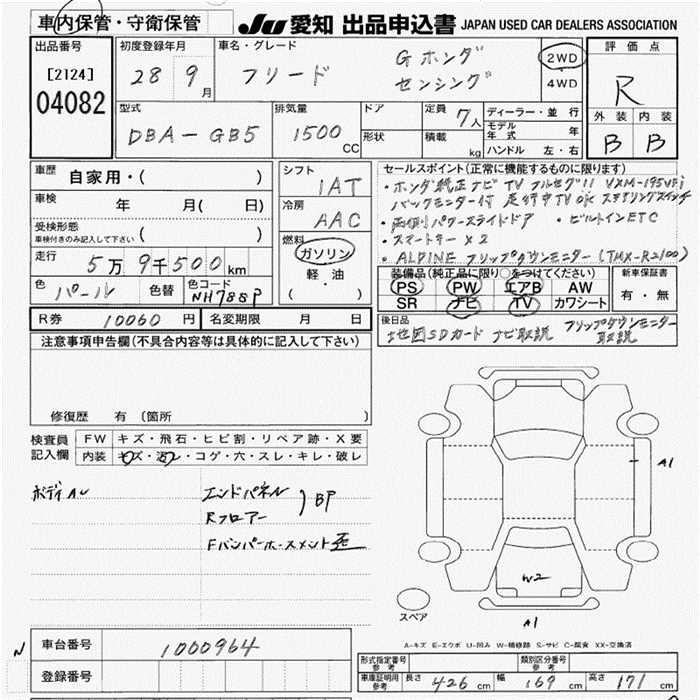 車内保管・守衛保管 JU 愛知 出品申込書 JAPAN USED CAR DEALERS ASSOCIATION
出品番号 [2124] 04082
初度登録年月 28 9月
車名・グレード フリード Gホンダセンシング
2WD ・ 4WD
評価点 R
外装 内装
B B
型式 DBA-GB5
排気量 1500 CC
ドア
形状
定員 7人
積載 kg
ディーラー・並行
モデル年式 年
ハンドル 左・右
車歴 自家用・( )
車検 年 月( 日)
受検形態 車検付きのみ記入して下さい ( )
走行 5万9千500km
色 パール 色替 色コード NH788P
シフト 1AT
冷房 AAC
燃料 ガソリン
軽・油
( )
セールスポイント(正常に機能するものに限ります)
・ホンダ純正ナビ TV フルセグ VXM-195VFi
バックモニター付 走行中TV OK ステアリングスイッチ
・両側パワースライドドア ・ビルトインETC
・スマートキー×2
・ALPINE フリップダウンモニター (TMX-R2100)
装備品(純正品に限り○をつけてください)
PS PW エアB AW
SR ナビ TV カワシート
新車保証書
有・無
R券 10060円 名変期限 月 日
後日品 地図SDカード ナビ取説 フリップダウンモニター取説
注意事項申告欄(不具合内容等は具体的に記入して下さい)
修復歴 有(箇所 )
検査員記入欄
FW キズ・飛石・ヒビ割・リペア跡・X要
内装 キズ・汚レ・コゲ・穴・スレ・キレ・破レ
エンドパネル
Rフロアー
BP
Fバンパーホースメント歪
A1
W2
A1
スペア
A-キズ E-エクボ U-凹み W-補修跡 S-サビ C-腐食 XX-交換済
N
車台番号 1000964
登録番号
形式指定番号 参考
類別区分番号 参考
車庫証明用 参考 長さ 426 cm 幅 169 cm 高さ 171 cm